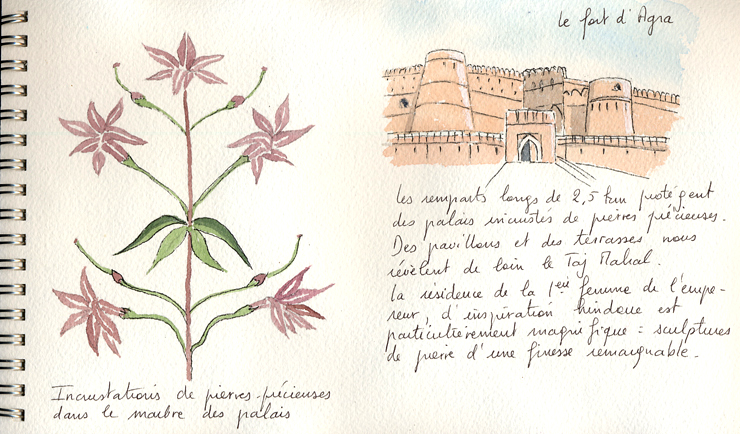 le fort d'Agra
les remparts longs de 2,5 km protègent
des palais incrustés de pierres précieuses.
Des pavillons et des terrasses nous
révèlent de loin le Taj Mahal.
La résidence de la 1ère femme de l'empe-
reur, d'inspiration hindoue est
particulièrement magnifique : sculptures
de pierre d'une finesse remarquable.
Incrustations de pierres-précieuses
dans le marbre des palais